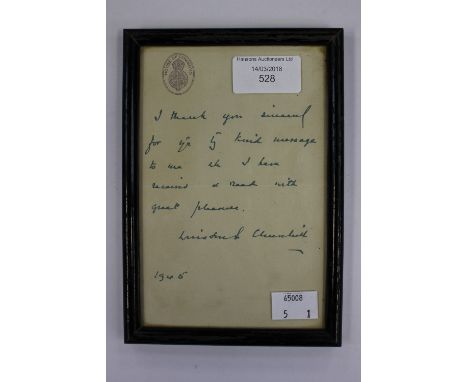 HOUSE OF COMMONS
Halsons Auctioneers Ltd
14/03/2018
528
I thank you sincerely
for yr kind message
to me wh I have
received & read with
great pleasure.
Winston S Churchill
1945
65008
5 1